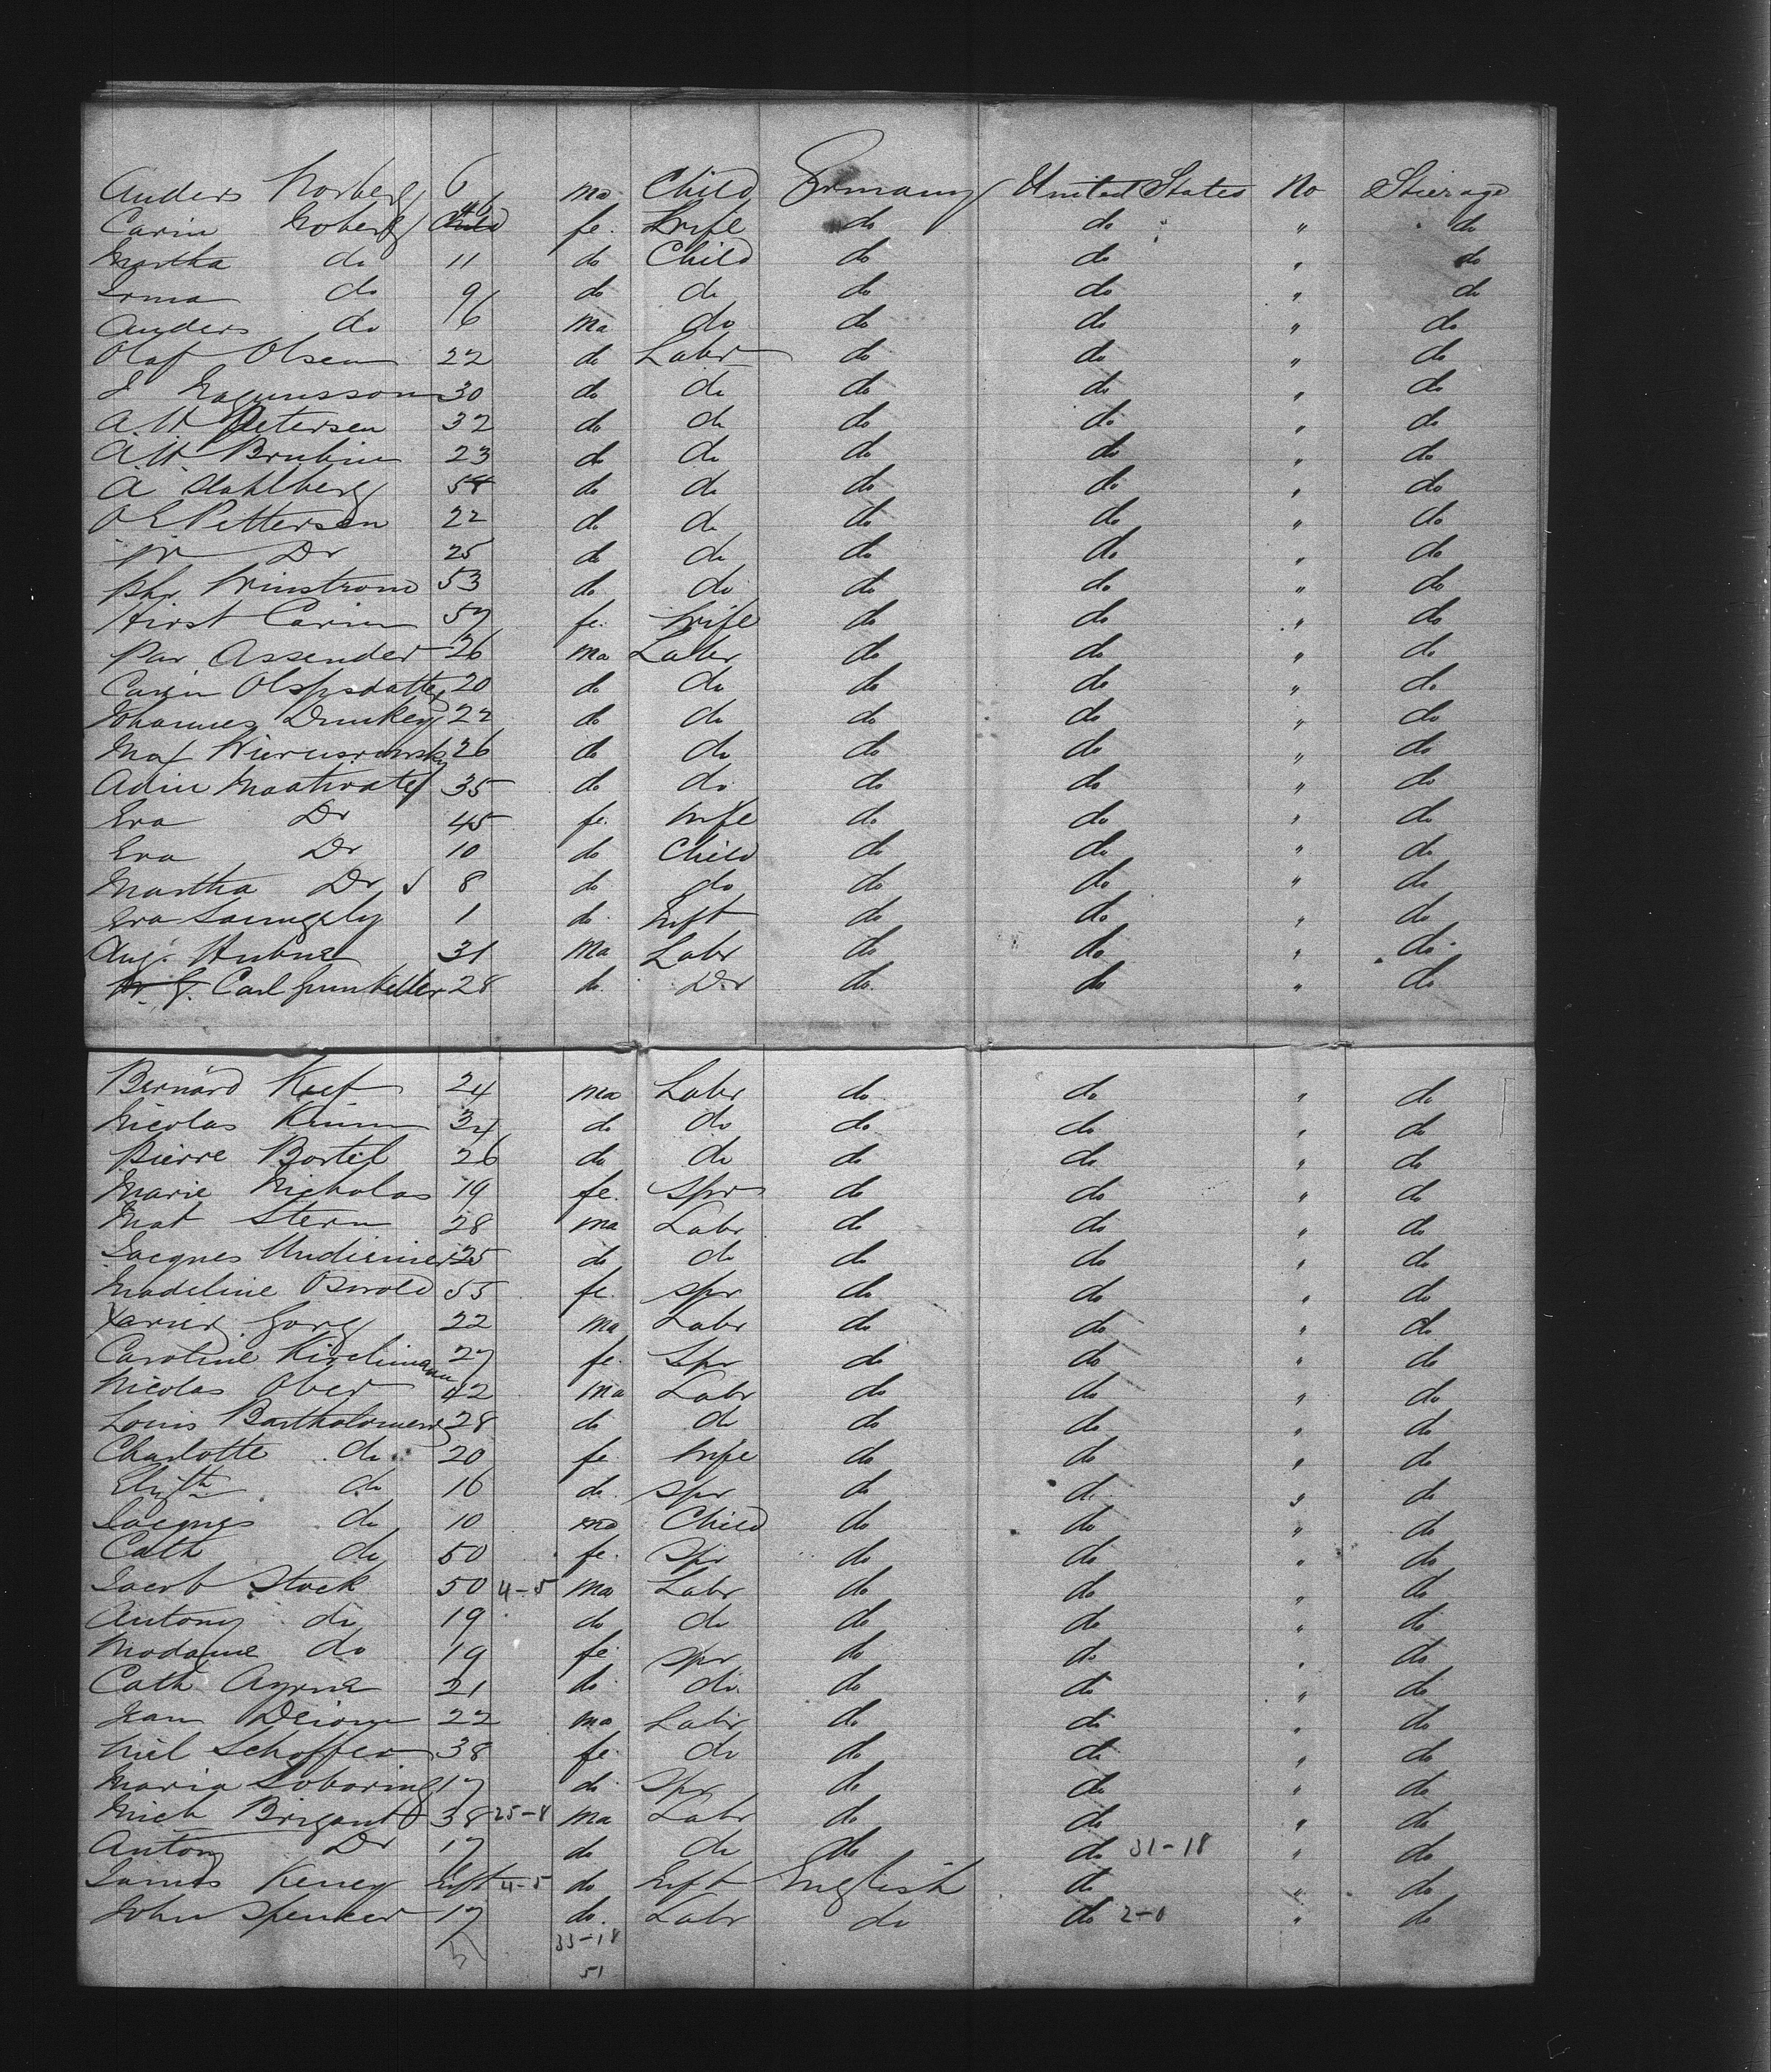 Anders Norberg 6 ma Child Germany United States No Stierage
Carin Noberg 46 fe. Wife do do " do
Martha do 11 do Child do do " do
Irma do 9 do do do do " do
Anders do 6 ma do do do " do
Olaf Olsen 22 do Labr do do " do
J Magnusson 30 do do do do " do
A.W. Petersen 32 do do do do " do
A.W. Brubin 23 do do do do " do
A Dahlberg 54 do do do do " do
O E Pettersen 22 do do do do " do
Dr 25 do do do do " do
Winstrom 53 do do do do " do
Hirst Carin 57 fe. Wife do do " do
Par Assender 26 ma Labr do do " do
Carin Olspsdatter 20 do do do do " do
Johannes Drunkey 22 do do do do " do
Max 26 do do do do " do
Adin 35 do do do do " do
Eva Dr 45 fe. Wife do do " do
Eva Dr 10 do Child do do " do
Martha Dr 8 do do do do " do
Eva 1 do Inft do do " do
Aug. Hubner 31 ma Labr do do " do
Carl 28 do Dr do do " do
Bernard Keef 24 ma Labr do do " do
Nicolas Krim 34 do do do do " do
Pierre Bortel 26 do do do do " do
Marie Nicholas 19 fe. Spr do do " do
Mat Stern 28 ma Labr do do " do
Jacques 25 do do do do " do
Madeline 55 fe. Spr do do " do
Xavier Gorg 22 ma Labr do do " do
Caroline Kirchmann 27 fe. Spr do do " do
Nicolas Ober 42 ma Labr do do " do
Louis Bartholomew 28 do do do do " do
Charlotte do 20 fe Wife do do " do
Elizth do 16 do Spr do do " do
Jacques do 10 ma Child do do " do
Cath do 50 fe. Spr do do " do
Jacob Stock 50 4-5 ma Labr do do " do
Antony do 19 do do do do " do
Madame do 19 fe. Spr do do " do
Cath 21 do do do do " do
Jean 22 ma Labr do do " do
Schaffer 38 fe. do do do " do
Maria Lobaring 17 do Spr do do " do
Mich Brigant 38 25-8 ma Labr do do " do
Antony Dr 17 do do do do 31-18 " do
James Keney Inft 4-5 do Inft English do " do
John Spencer 17 do. Labr do do 2-0 " do
33-18
51